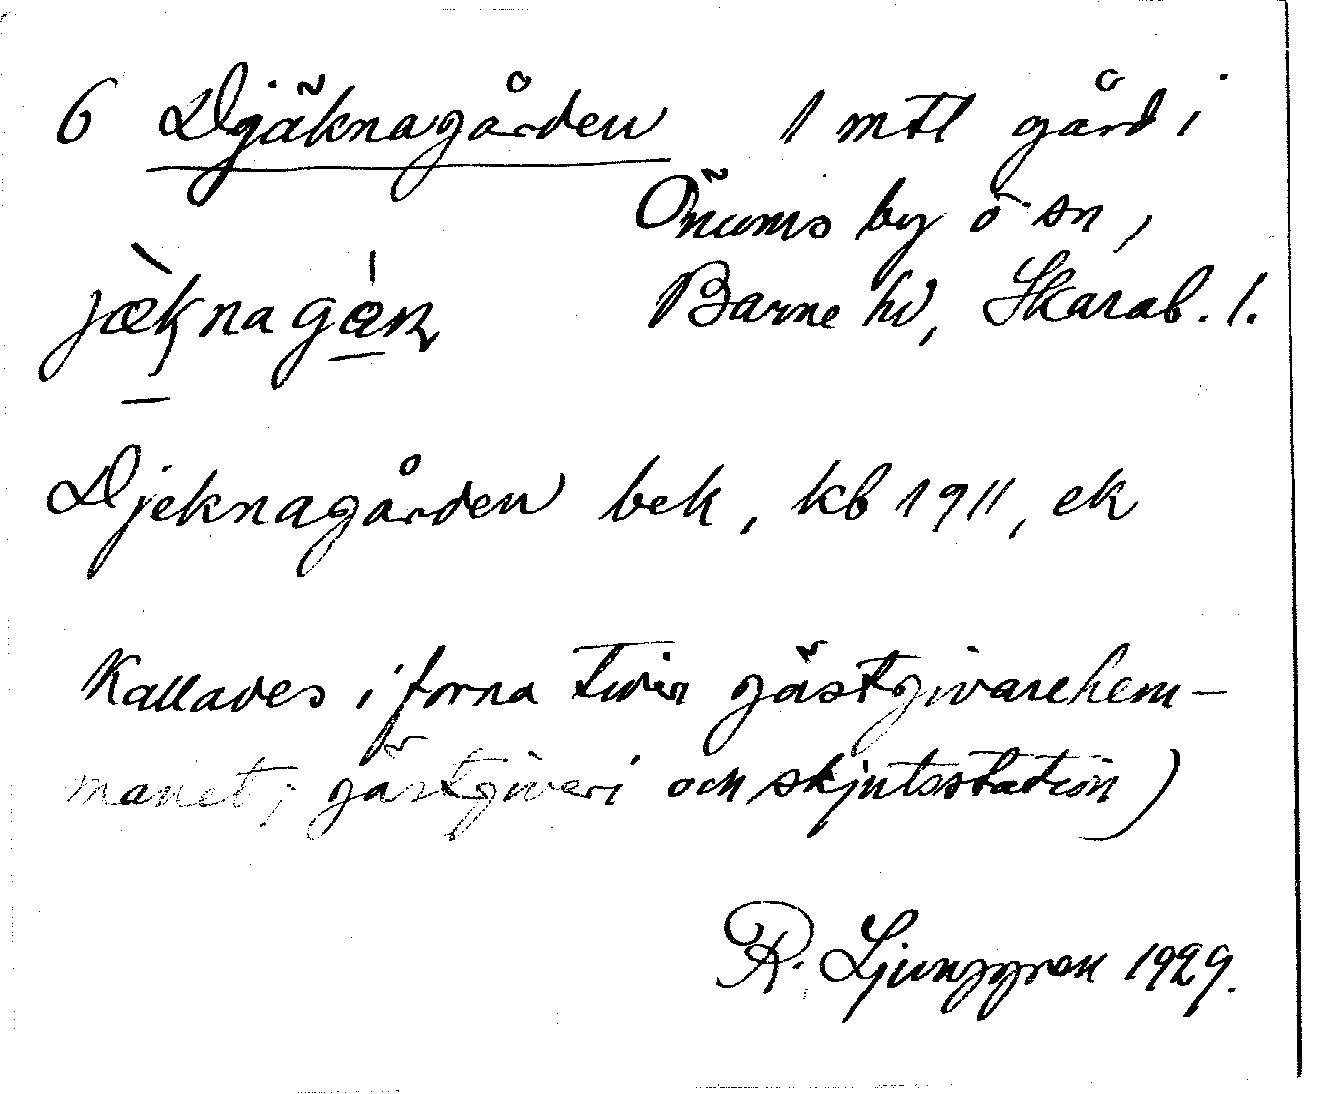 6 Djäknagården 1 mtl gård i
Önums by o sn,
jæ̀knagɑ́ɴ Barne hd, Skarab. l.
Djeknagården bek, kb 1911, ek
Kallades i forna tider gästgivarehem-
manet; gästgiveri och skjutsstation)
R. Ljunggren 1929.